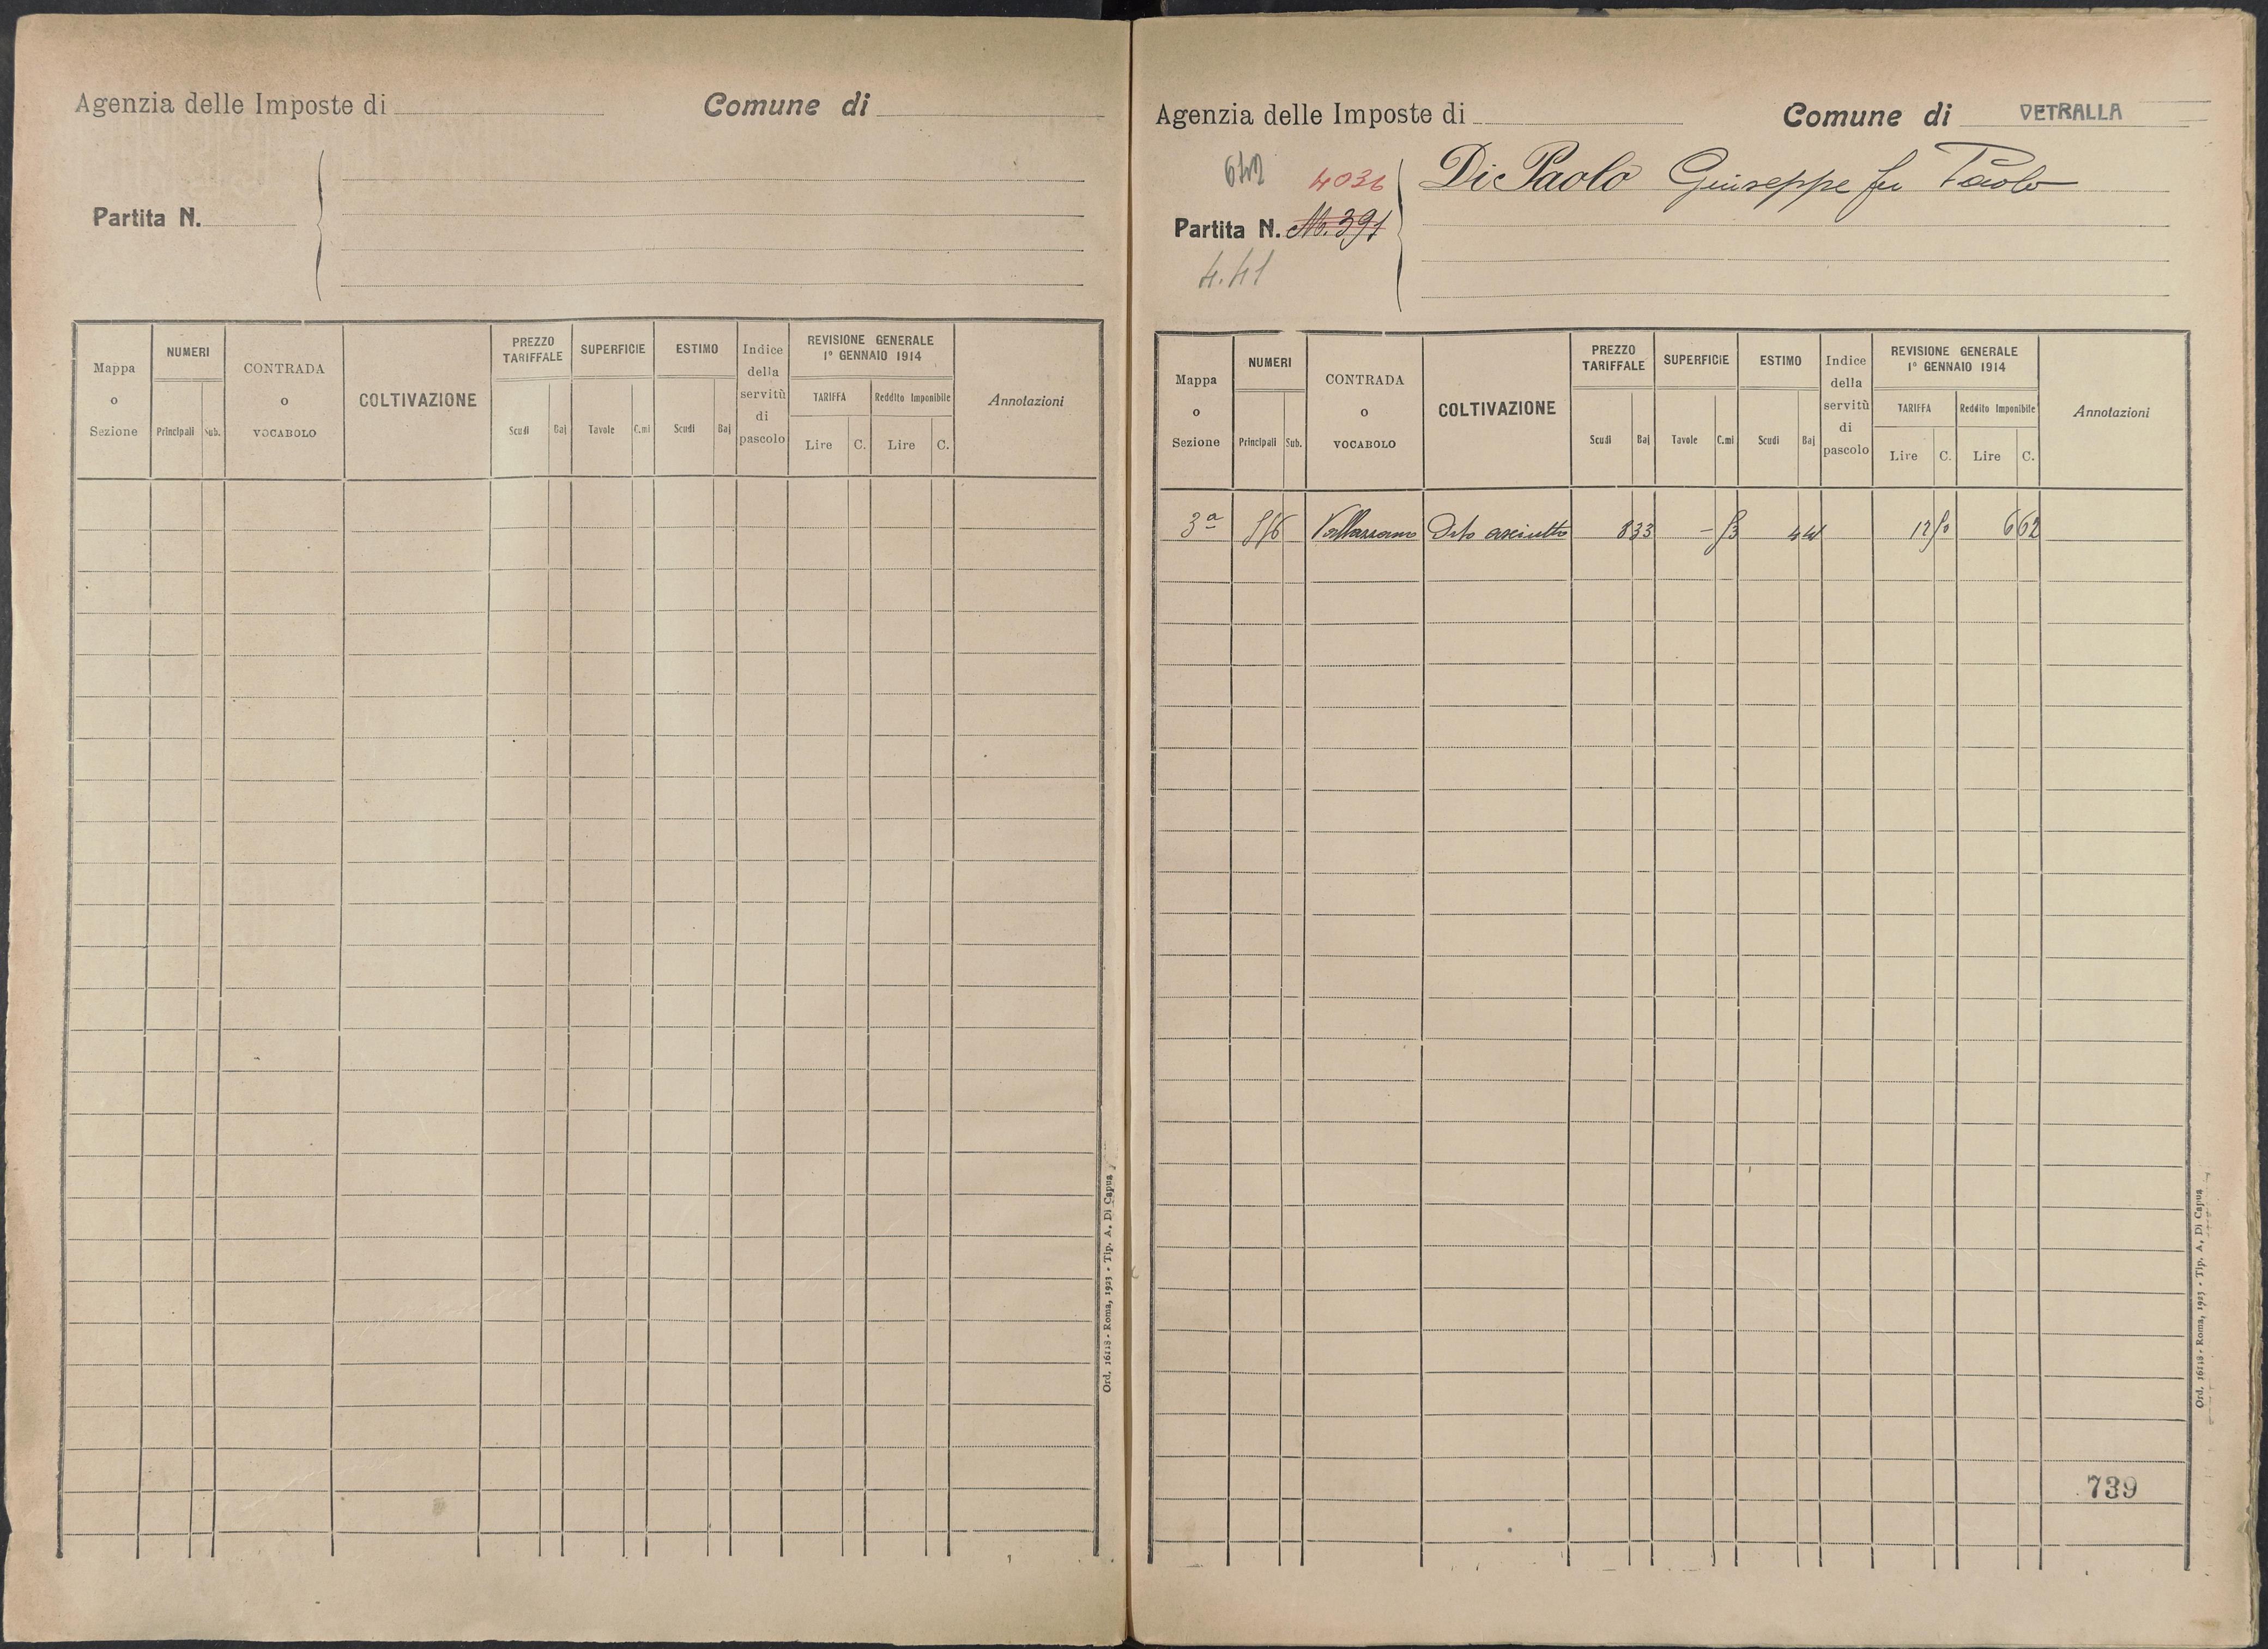 Agenzia delle Imposte di
Comune di
Partita N.
Mappa o Sezione
NUMERI
Principali Sub.
CONTRADA o VOCABOLO
COLTIVAZIONE
PREZZO TARIFFALE
Scudi Baj
SUPERFICIE
Tavole C.mi
ESTIMO
Scudi Baj
Indice della servitù di pascolo
REVISIONE GENERALE
1° GENNAIO 1914
TARIFFA Reddito Imponibile
Lire C. Lire C.
Annotazioni
Ord. 16118 - Roma, 1923 - Tip. A. Di Capua
Agenzia delle Imposte di
Comune di VETRALLA
4036
Di Paolo Giuseppe fu Paolo
Partita N. 391
4.41
Mappa o Sezione
NUMERI
Principali Sub.
CONTRADA o VOCABOLO
COLTIVAZIONE
PREZZO TARIFFALE
Scudi Baj
SUPERFICIE
Tavole C.mi
ESTIMO
Scudi Baj
Indice della servitù di pascolo
REVISIONE GENERALE
1° GENNAIO 1914
TARIFFA Reddito Imponibile
Lire C. Lire C.
Annotazioni
3ª asciutto 8 33 6 62
739
Ord. 16118 - Roma, 1923 - Tip. A. Di Capua